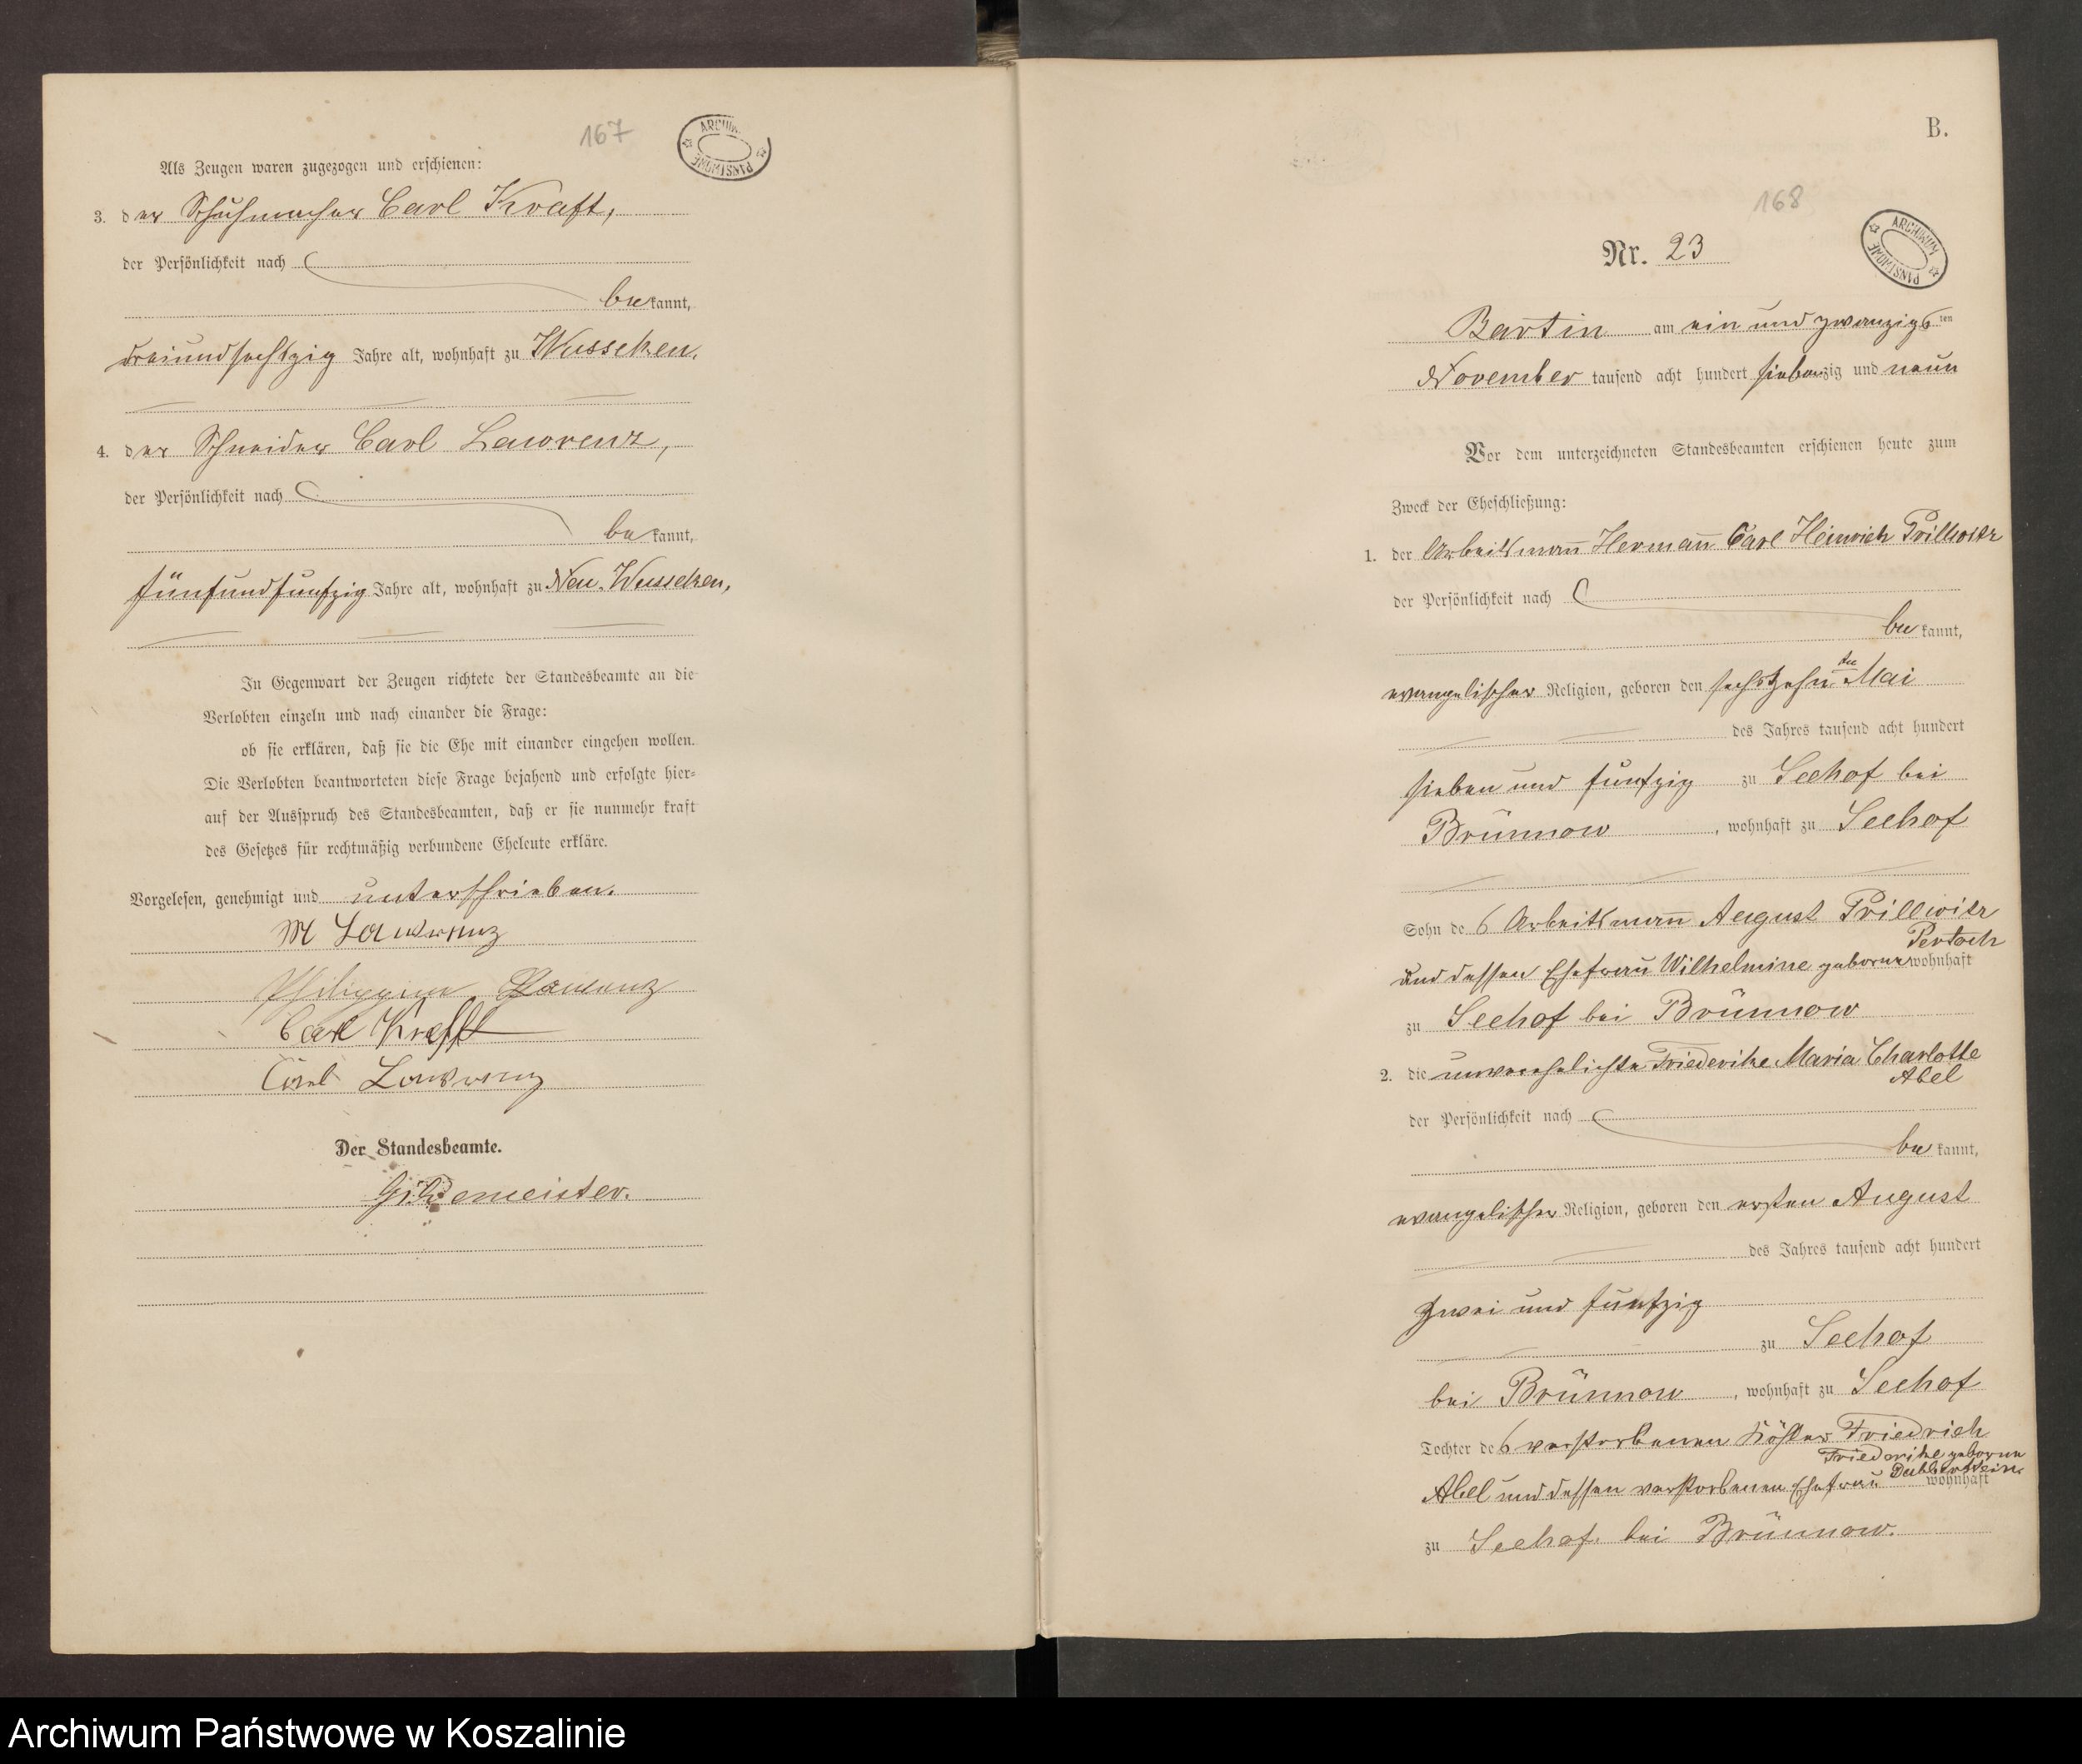 167
ARCHIWUM PAŃSTWOWE
Als Zeugen waren zugezogen und erschienen:
3. der Schuhmacher Carl Kraft,
der Persönlichkeit nach
bekannt,
dreiundsechszig Jahre alt, wohnhaft zu Wusseken.
4. der Schneider Carl Lawrenz,
der Persönlichkeit nach
bekannt,
fünfundfunfzig Jahre alt, wohnhaft zu Neu-Wusseken,
In Gegenwart der Zeugen richtete der Standesbeamte an die
Verlobten einzeln und nach einander die Frage:
ob sie erklären, daß sie die Ehe mit einander eingehen wollen.
Die Verlobten beantworteten diese Frage bejahend und erfolgte hier=
auf der Ausspruch des Standesbeamten, daß er sie nunmehr kraft
des Gesetzes für rechtmäßig verbundene Eheleute erkläre.
Vorgelesen, genehmigt und unterschrieben.
M Lawrenz
Philippine Lawrenz
Carl Krafft
Carl Lawrenz
Der Standesbeamte.
Gildemeister.
B.
168
ARCHIWUM PAŃSTWOWE
Nr. 23
Bartin am ein und zwanzigsten
November tausend acht hundert siebenzig und neun
Vor dem unterzeichneten Standesbeamten erschienen heute zum
Zweck der Eheschließung:
1. der Arbeitsmann Hermann Carl Heinrich Prillwitz
der Persönlichkeit nach
bekannt,
evangelischer Religion, geboren den sechszehnten Mai
des Jahres tausend acht hundert
sieben und funfzig zu Seehof bei
Brünnow, wohnhaft zu Seehof
Sohn des Arbeitsmann August Prillwitz
und dessen Ehefrau Wilhelmine geborne Pertoch wohnhaft
zu Seehof bei Brünnow
2. die unverehelichte Friederike Maria Charlotte
Abel
der Persönlichkeit nach
bekannt,
evangelischer Religion, geboren den ersten August
des Jahres tausend acht hundert
zwei und funfzig
zu Seehof
bei Brünnow, wohnhaft zu Seehof
Tochter des verstorbenen Friedrich
Abel und dessen verstorbenen Ehefrau Friederike geborne wohnhaft
zu Seehof bei Brünnow.
Archiwum Państwowe w Koszalinie